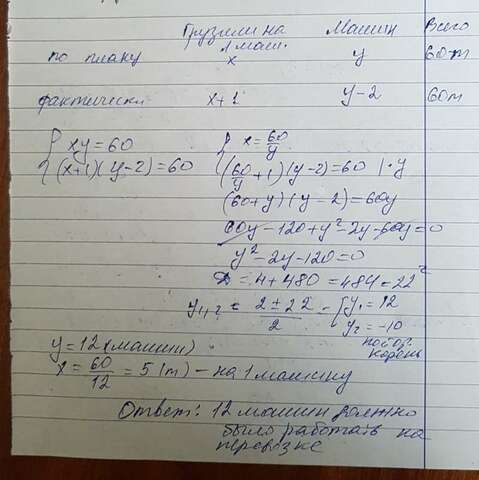 Грузили на 1 маш. Машин Всего
по плану x y 60т
фактически x+1 y-2 60т
{ xy = 60
(x+1)(y-2) = 60
{ x = 60/y
(60/y + 1)(y-2) = 60 | · y
(60+y)(y-2) = 60y
60y - 120 + y² - 2y - 60y = 0
y² - 2y - 120 = 0
D = 4 + 480 = 484 = 22²
y₁,₂ = (2 ± 22)/2 = [ y₁ = 12
y₂ = -10
корень
y = 12 (машин)
x = 60/12 = 5 (т) - на 1 машину
Ответ: 12 машин должно
было работать на
перевозке